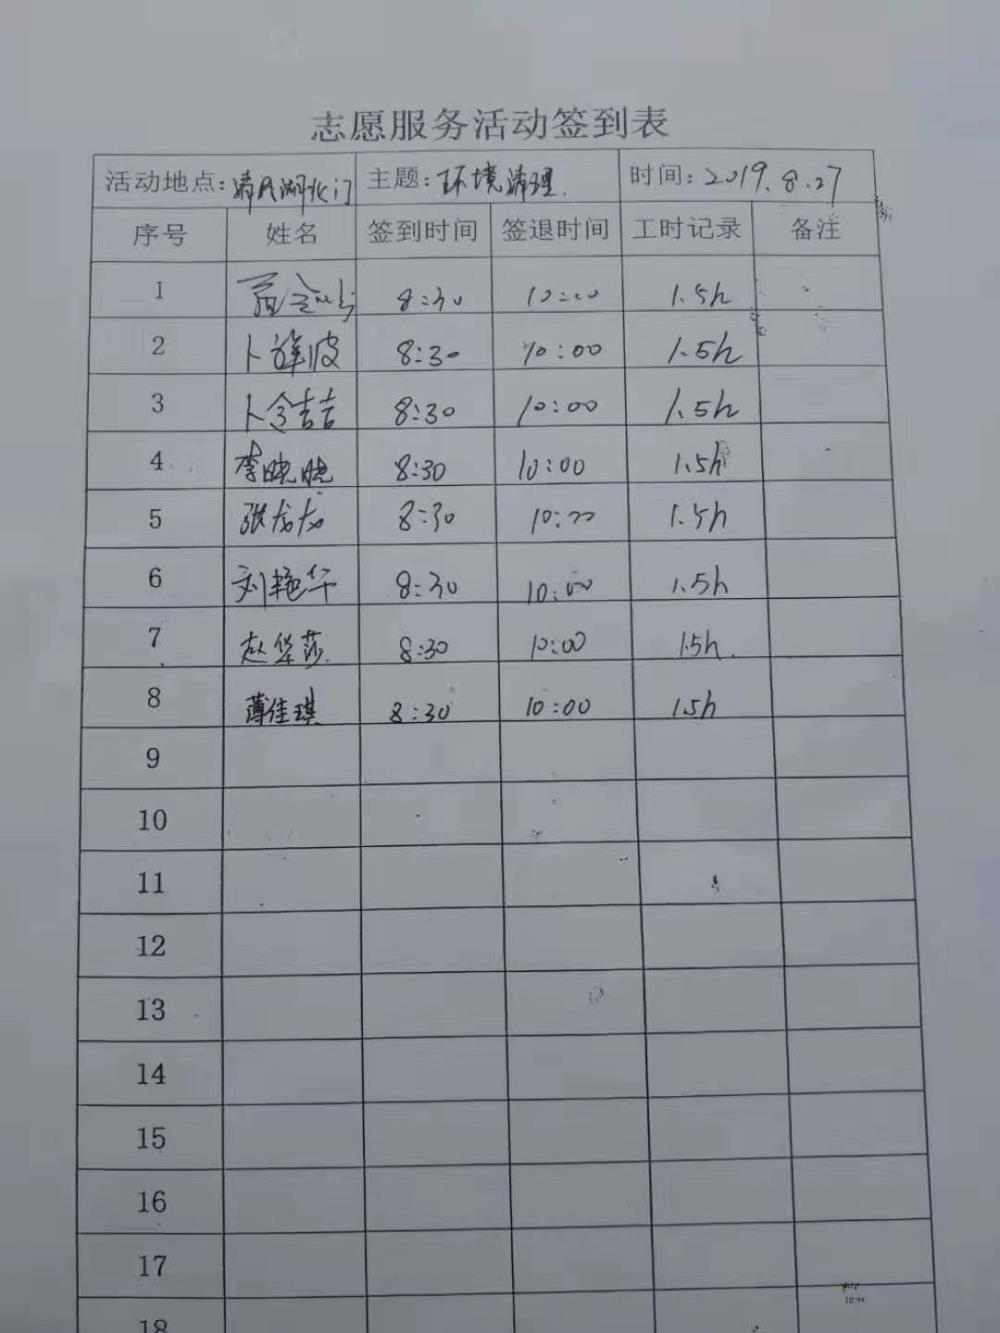 志愿服务活动签到表
活动地点: 清风湖北门 主题: 环境清理. 时间: 2019.8.27
序号 姓名 签到时间 签退时间 工时记录 备注
1 8:30 10:00 1.5h
2 卜 波 8:30 10:00 1.5h
3 卜令喆 8:30 10:00 1.5h
4 李晓晓 8:30 10:00 1.5h
5 张龙龙 8:30 10:00 1.5h
6 刘艳华 8:30 10:00 1.5h
7 赵华莎. 8:30 10:00 1.5h.
8 薄佳琪 8:30 10:00 1.5h
9
10
11
12
13
14
15
16
17
18